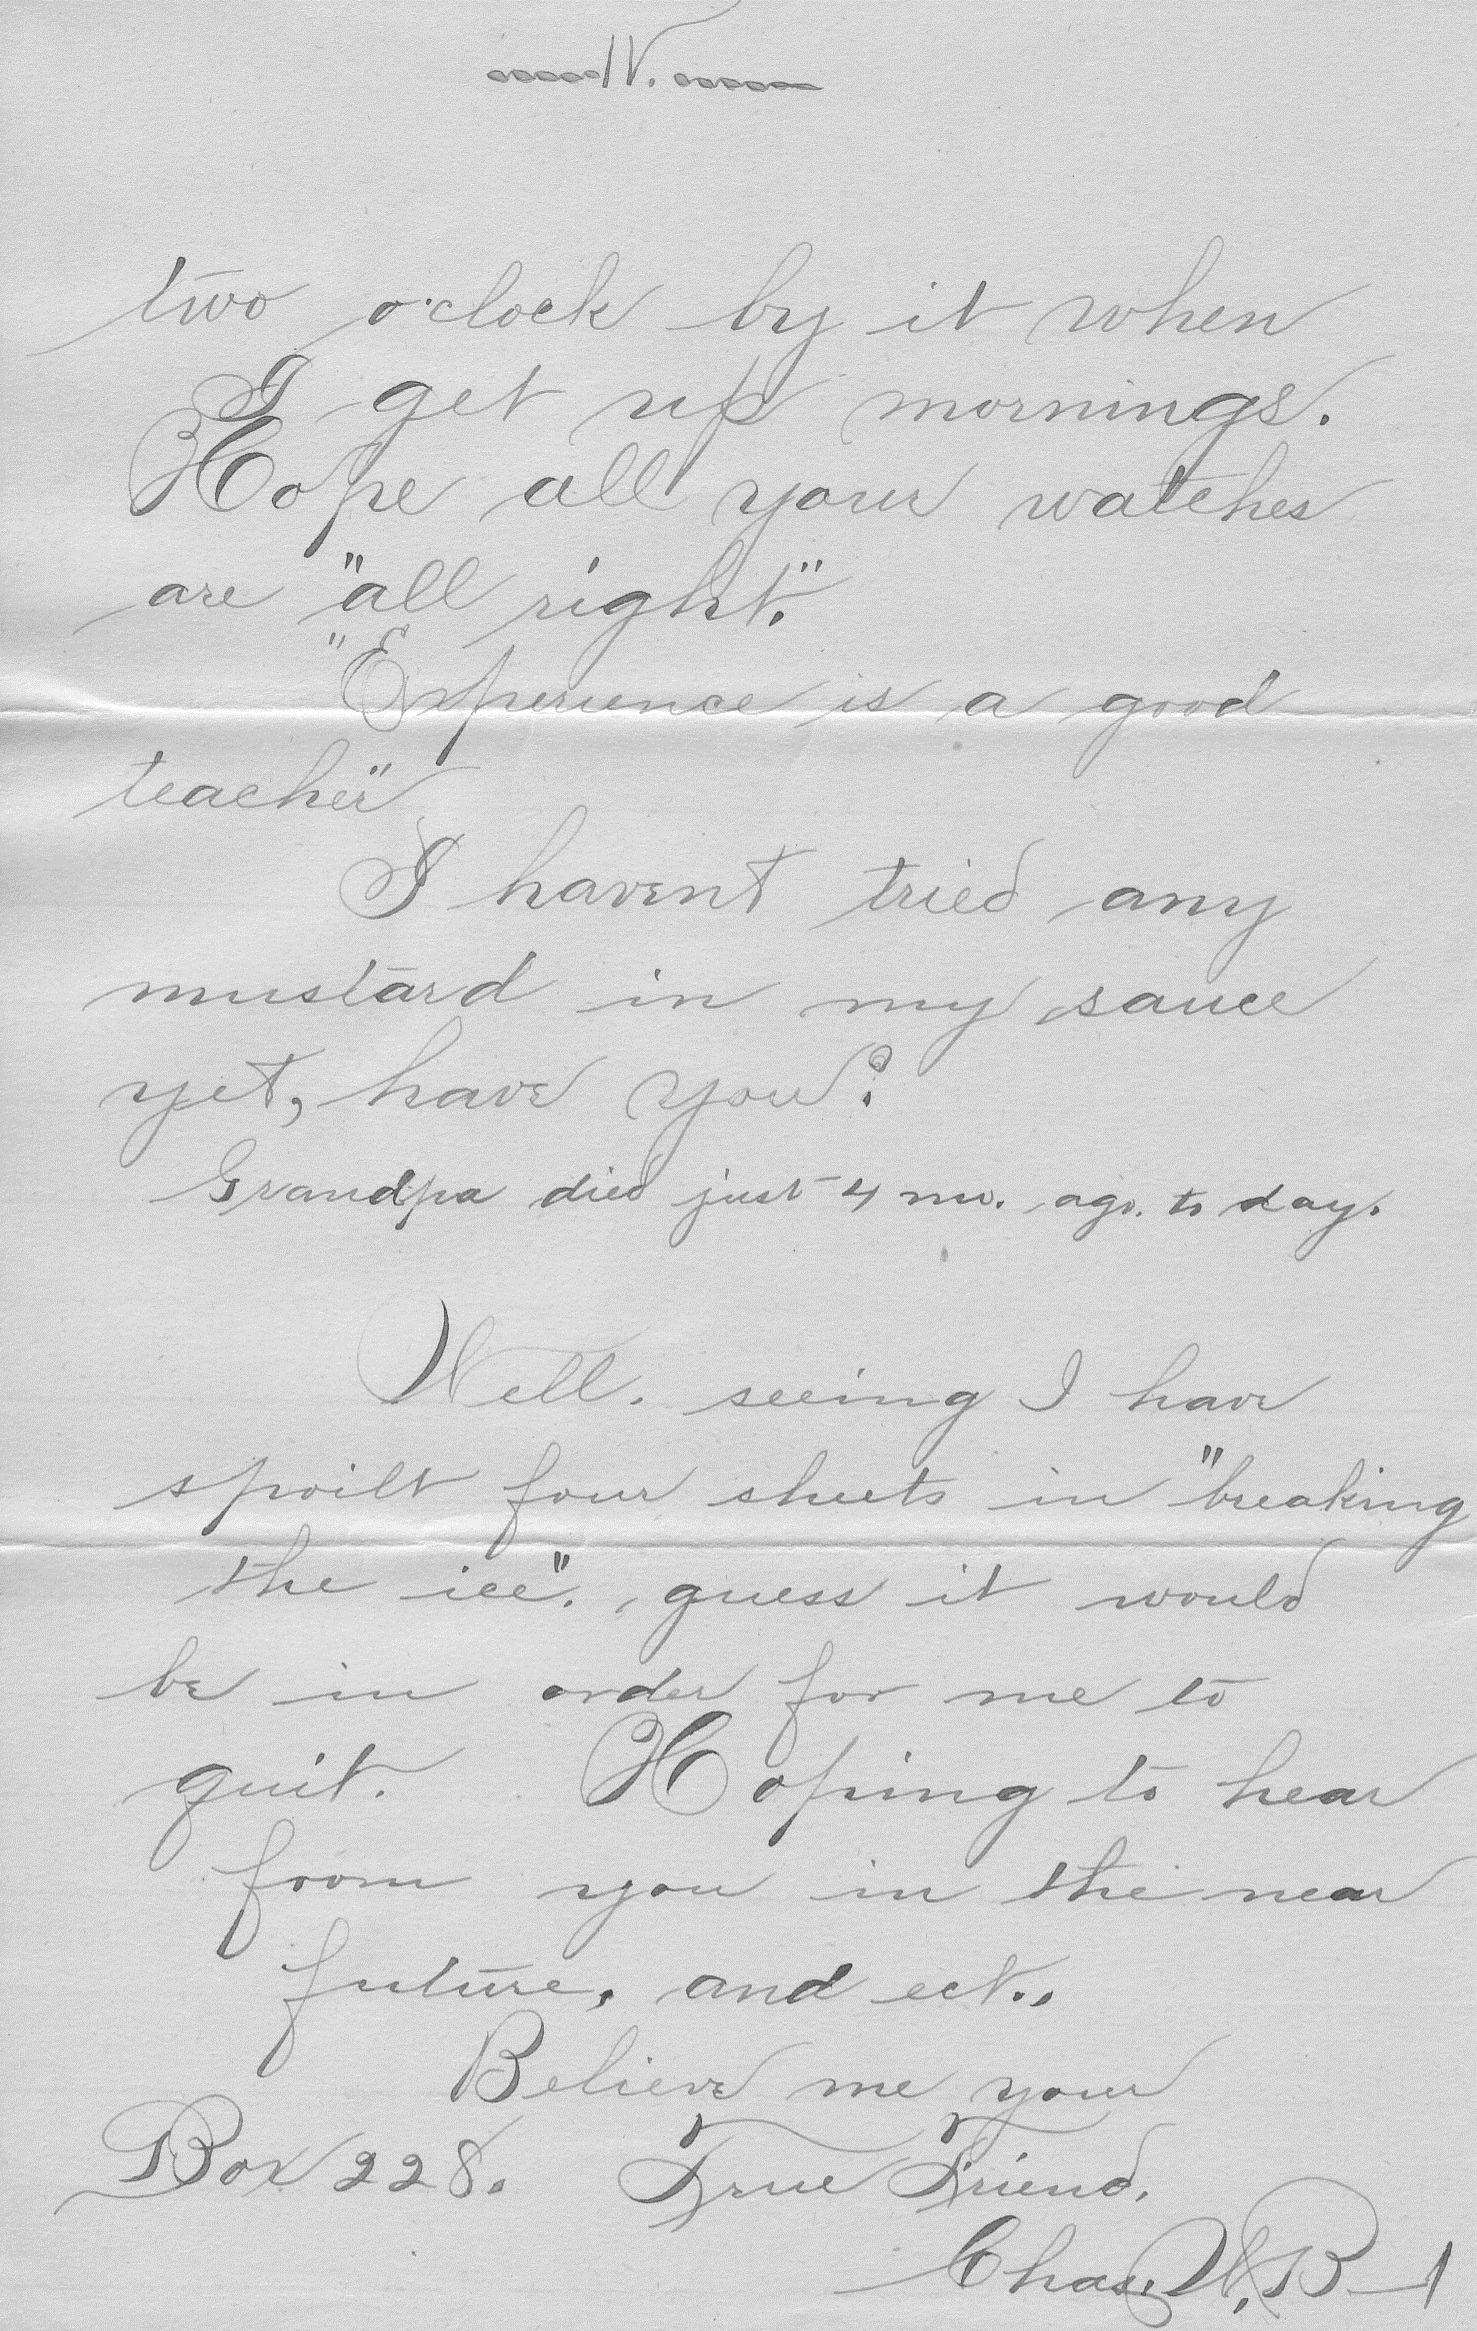 IV.
two o'clock by it when
I get up mornings.
Hope all your watches
are "all right."
"Experience is a good
teacher"
I havent tried any
mustard in my sauce
yet, have you?
Grandpa died just 4 mo. ago. to day.
Well. seeing I have
spoilt four sheets in "breaking
the ice"., guess it would
be in order for me to
quit. Hoping to hear
from you in the near
future, and ect.,
Believe me your
Box 228. True Friend.
Chas. W. B—t